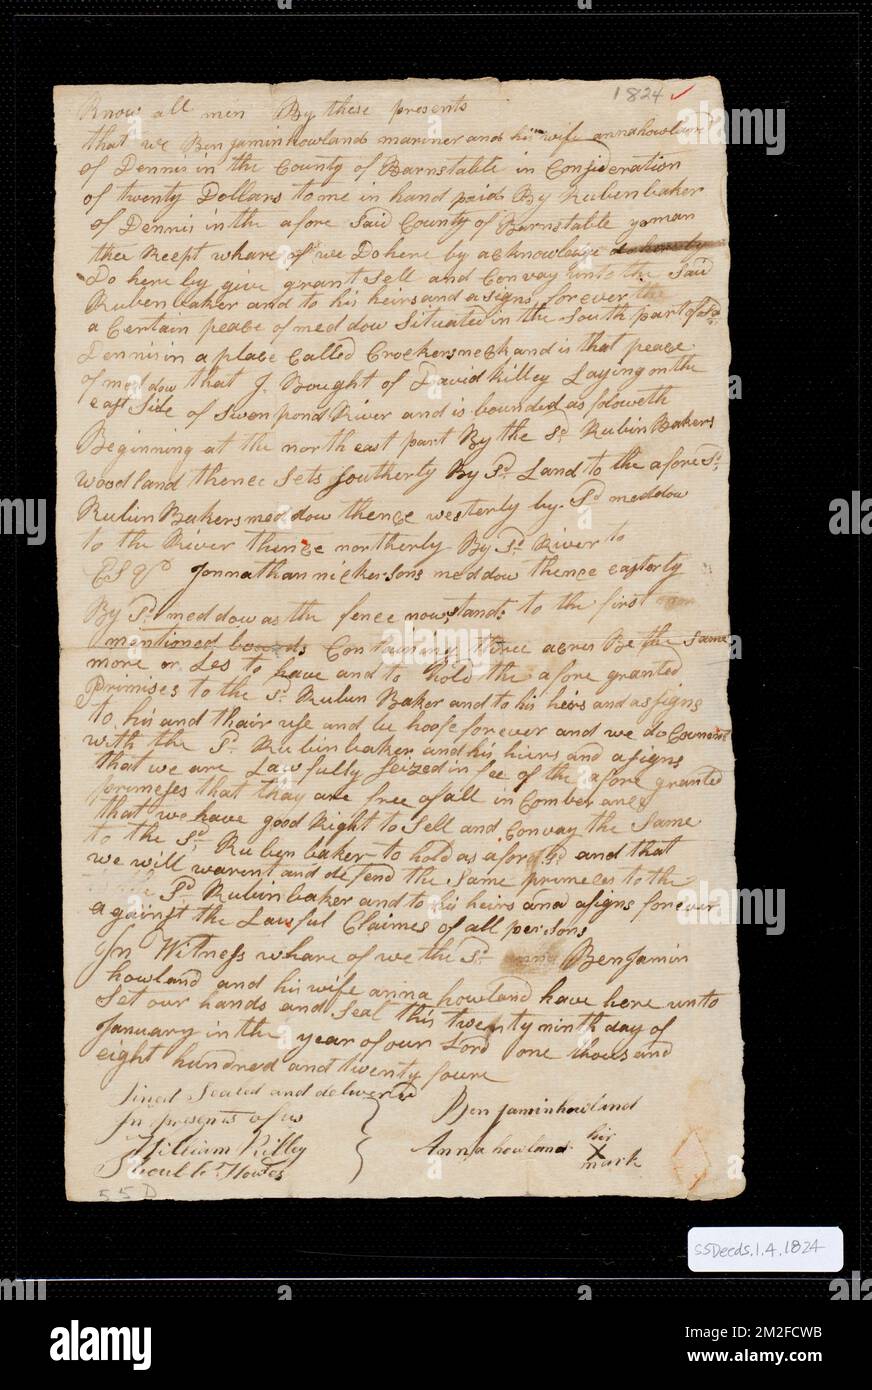 1824 ✓
Know all men By these presents
that we Benjamin howland marener and his wife anna howland
of Dennis in the County of Barnstable in Consideration
of twenty Dollars to me in hand paid By Ruben baker
of Dennis in the afore Said County of Barnstable yoman
the Reept whare of we Do here by acknowledge do here by
Do here by give grant Sell and Convay unto the Said
Ruben baker and to his heirs and asigns for ever the
a Certain peace of meddow Situated in the South part of Sd
Dennis in a place Called Crockers neck and is that peace
of meddow that J. Bought of David Killey Laying on the
east Side of Swan pond River and is bounded as foloweth
Beginning at the north east part By the Sd Rubin Bakers
woodland thence Sets Southerly By Sd Land to the afore Sd
Rubin Bakers meddow thence westerly by Sd meddow
to the River thence northerly By Sd River to
Jonnathan nickersons meddow thence easterly
By Sd meddow as the fence now stands to the first
mentioned bounds Containing three acres Be the Same
more or Les to have and to hold the afore granted
Primises to the Sd Ruben Baker and to his heirs and assigns
to his and thair use and be hoofe forever and we do Covenant
with the Sd Rubin baker and his heirs and asigns
that we are Lawfully Seized in fee of the afore granted
primeses that thay are free of all in Comberances
that we have good Right to Sell and Convay the Same
to the Sd Ruben baker to hold as afore Sd and that
we will warent and defend the Same primeces to the
Sd Rubin baker and to his heirs and asigns forever
against the Lawful Claimes of all persons
In Witness whare of we the Sd Benjamin
howland and his wife anna howland have here unto
Set our hands and Seal this twenty ninth day of
January in the year of our Lord one thousand
eight hundred and twenty foure
Sined Sealed and delivered
in presents of us
Benjamin howland
William Killey
Anna howland her X mark
Howes
55D
SSDeeds.1.4.1824
alamy
Image ID: 2M2FCWB
www.alamy.com